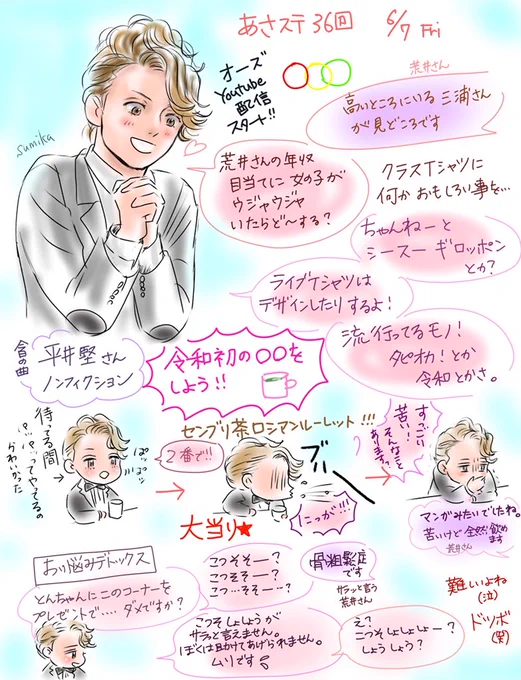 あさステ 36回 6/7 Fri
sumika
オーズ
Youtube
配信
スタート!!
荒井さん
高いところにいる 三浦さん
が見どころです
荒井さんの年収
目当てに 女の子が
ウジャウジャ
いたらど〜する?
クラスTシャツに
何か おもしろい事を…
ちゃんねーと
シースー ギロッポン
とか?
ライブTシャツは
デザインしたりするよ!
流行ってるモノ!
タピオカ!とか
令和とかさ。
今日の曲
平井堅さん
ノンフィクション
令和初の〇〇を
しよう!!
センブリ茶ロシアンルーレット!!!
待ってる間
パッパッってやってるの
かわいかった
ぱッ
ぱッ
2番で!!
ブーッ
にっが!!!
大当り★
すっごい
苦い!
そんなこと
あります?
マンガみたいでしたね。
苦いけど 全然飲め
ます
荒井さん
お悩みデトックス
とんちゃんにこのコーナーを
プレゼントで…. ダメですか?
こつそそー?
こつそそー?
こつ…そそー…?
骨粗鬆症
です
サラッと言う
荒井さん
難しいよね
(泣)
ドツボ
(笑)
こつそしょしょうが
サラッと言えません。
ぼくは助けてあげられません。
ムリです
え?
こつそしょしょしょー?
しょうしょう?